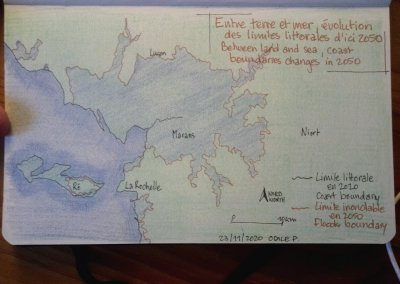 Entre terre et mer, évolution
des limites littorales d'ici 2050
Between land and sea, coast
boundaries changes in 2050
Luçon
Marans
Niort
Ré
La Rochelle
Limite littorale
en 2020
Coast boundary
NORD
NORTH
Limite inondable
en 2050
Floods boundary
23/11/2020